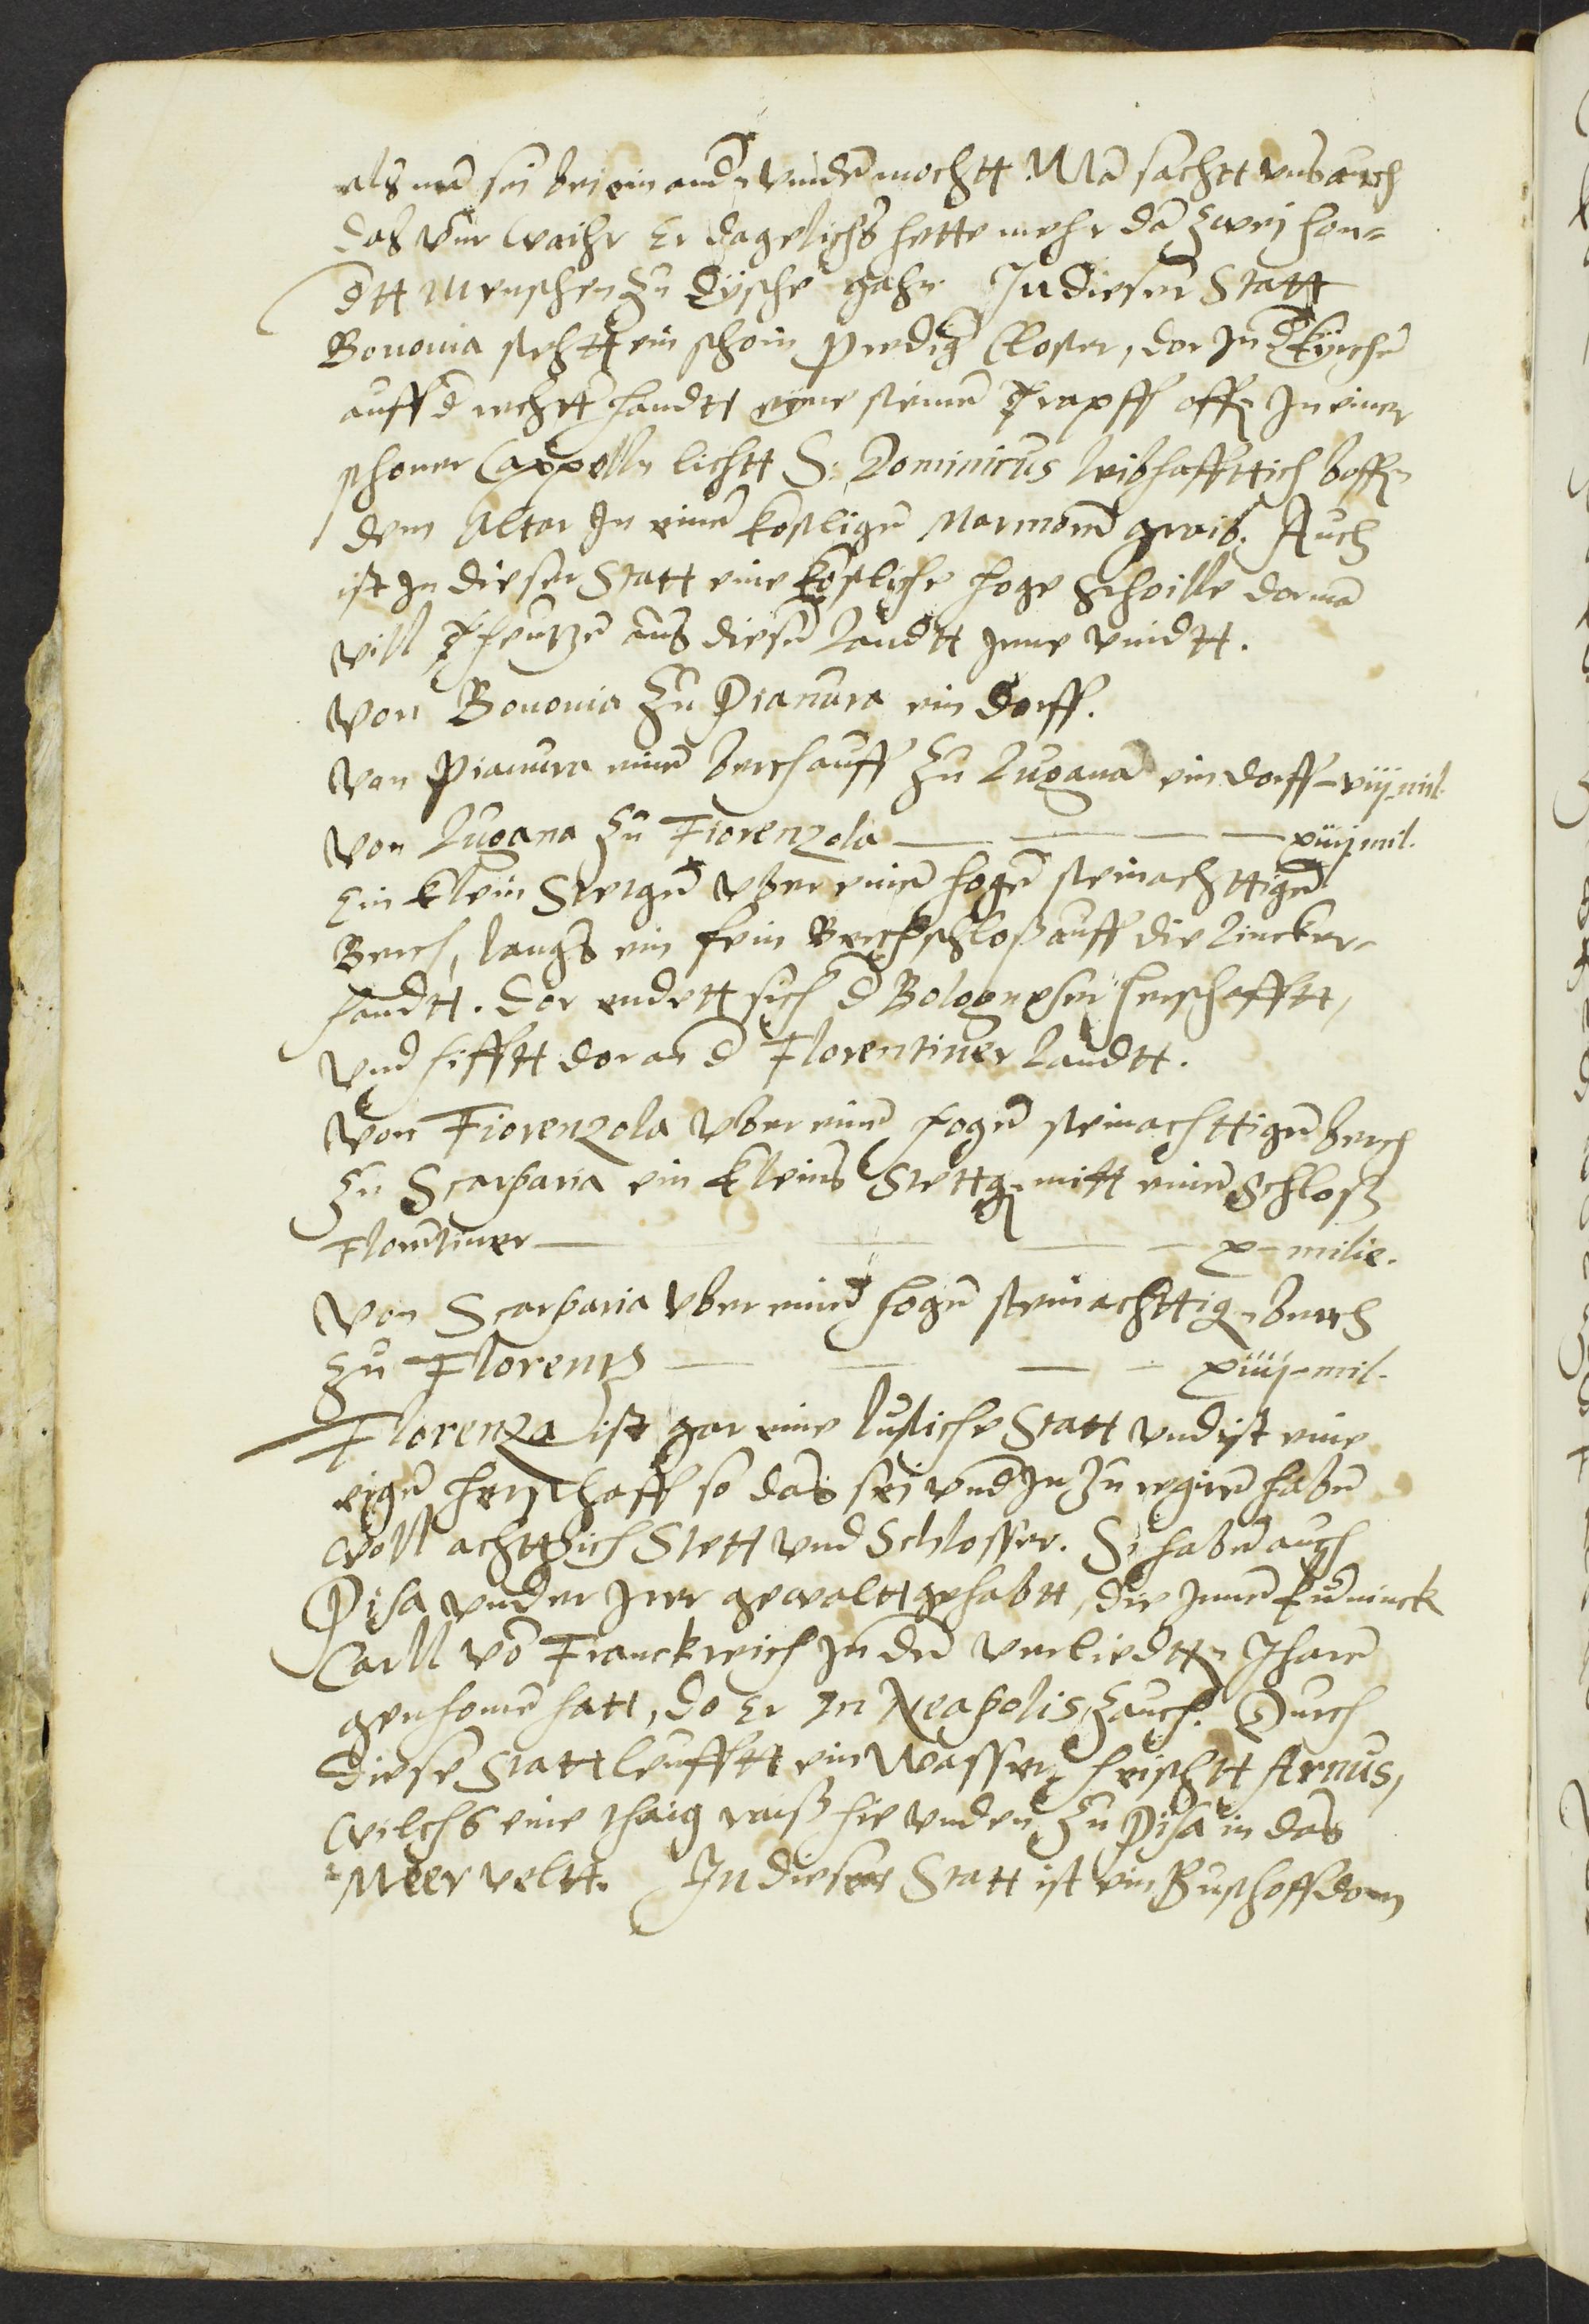 als mã sei bei ein andꝛ vinden mochtt Mã sachtt vns auch
das vur waihr Er dagelichs hette mehr dã zwej hon=
dtt Menschen zu dische gahn In dieser Statt
Bononia stehtt ein schoin Prediger Closter, dor In d kyrchẽ
auff d rechtt handtt eyne steinne trapff off In einer
schoner Cappelle lichtt S. Dominicus leibhafftich boffen
dem Altar In einẽ kostligẽ Marmorn graib. Auch
ist In dieser Statt eine kostliche hoge Schoille dor mã
vill Theutzẽ aus diesen landtt Inne vindtt.
Von Bononia zu Pianura ein dorff.
Von Pianura einẽ berch auff zu Lugana ein dorff - viij mil.
Von Lugana zu Fiorenzola — xiiij mil.
Ein klein Stetgẽ vber einẽ hogẽ steinachttigẽ
Berch, langs ein fein Berchschloß auff die lincker
handtt. Dor endett sich d Bologneser herschafftt,
vnd hefftt dor an d Florentiner landtt.
Von Fiorenzola vber einẽ hogẽ steinachttigẽ berch
zu Scarparia ein kleins Stettgẽ mitt einẽ Schloß
Florẽtiner — x - milie.
Von Scarparia vber einẽ hogẽ steinachttigẽ berch
zu Florentz — xiiij - mil.
Florenza ist gar eine lustiche Statt vnd ist eine
eigẽ herschaff so das sei vnd In zu regirẽ habẽ
woll achtzich Stett vnd Schlosser. Si habẽ auch
Pisa vnder Irer gewaltt gehabtt, die Innẽ kuninck
Carll võ Franckreich In den verliedttẽ Iharẽ
genhomẽ hatt, do Er In Neapolis zauch. Durch
diese Statt leufftt ein Wasser heischtt Arnus,
welchs eine thaig raiß hie vnden zu Pisa in das
Meer veltt. In dieser Statt ist ein Buschoffdom